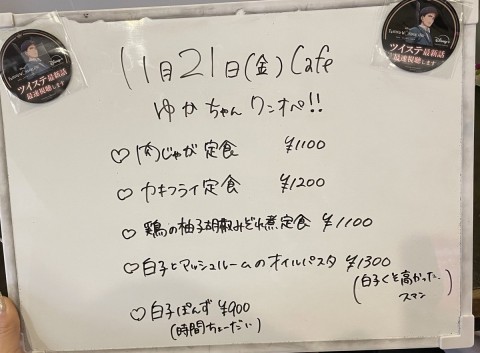 11月21日(金) Cafe
ゆかちゃんワンオペ!!
♡ 肉じゃが定食 ¥1100
♡ カキフライ定食 ¥1200
♡ 鶏の柚子胡椒みぞれ煮定食 ¥1100
♡ 白子とマッシュルームのオイルパスタ ¥1300
(白子くそ高かった、
スマン)
♡ 白子ぽんず ¥900
(時間ちょーだい)
Disney+
ツイステ最新話
最速視聴します
Disney+
ツイステ最新話
最速視聴します